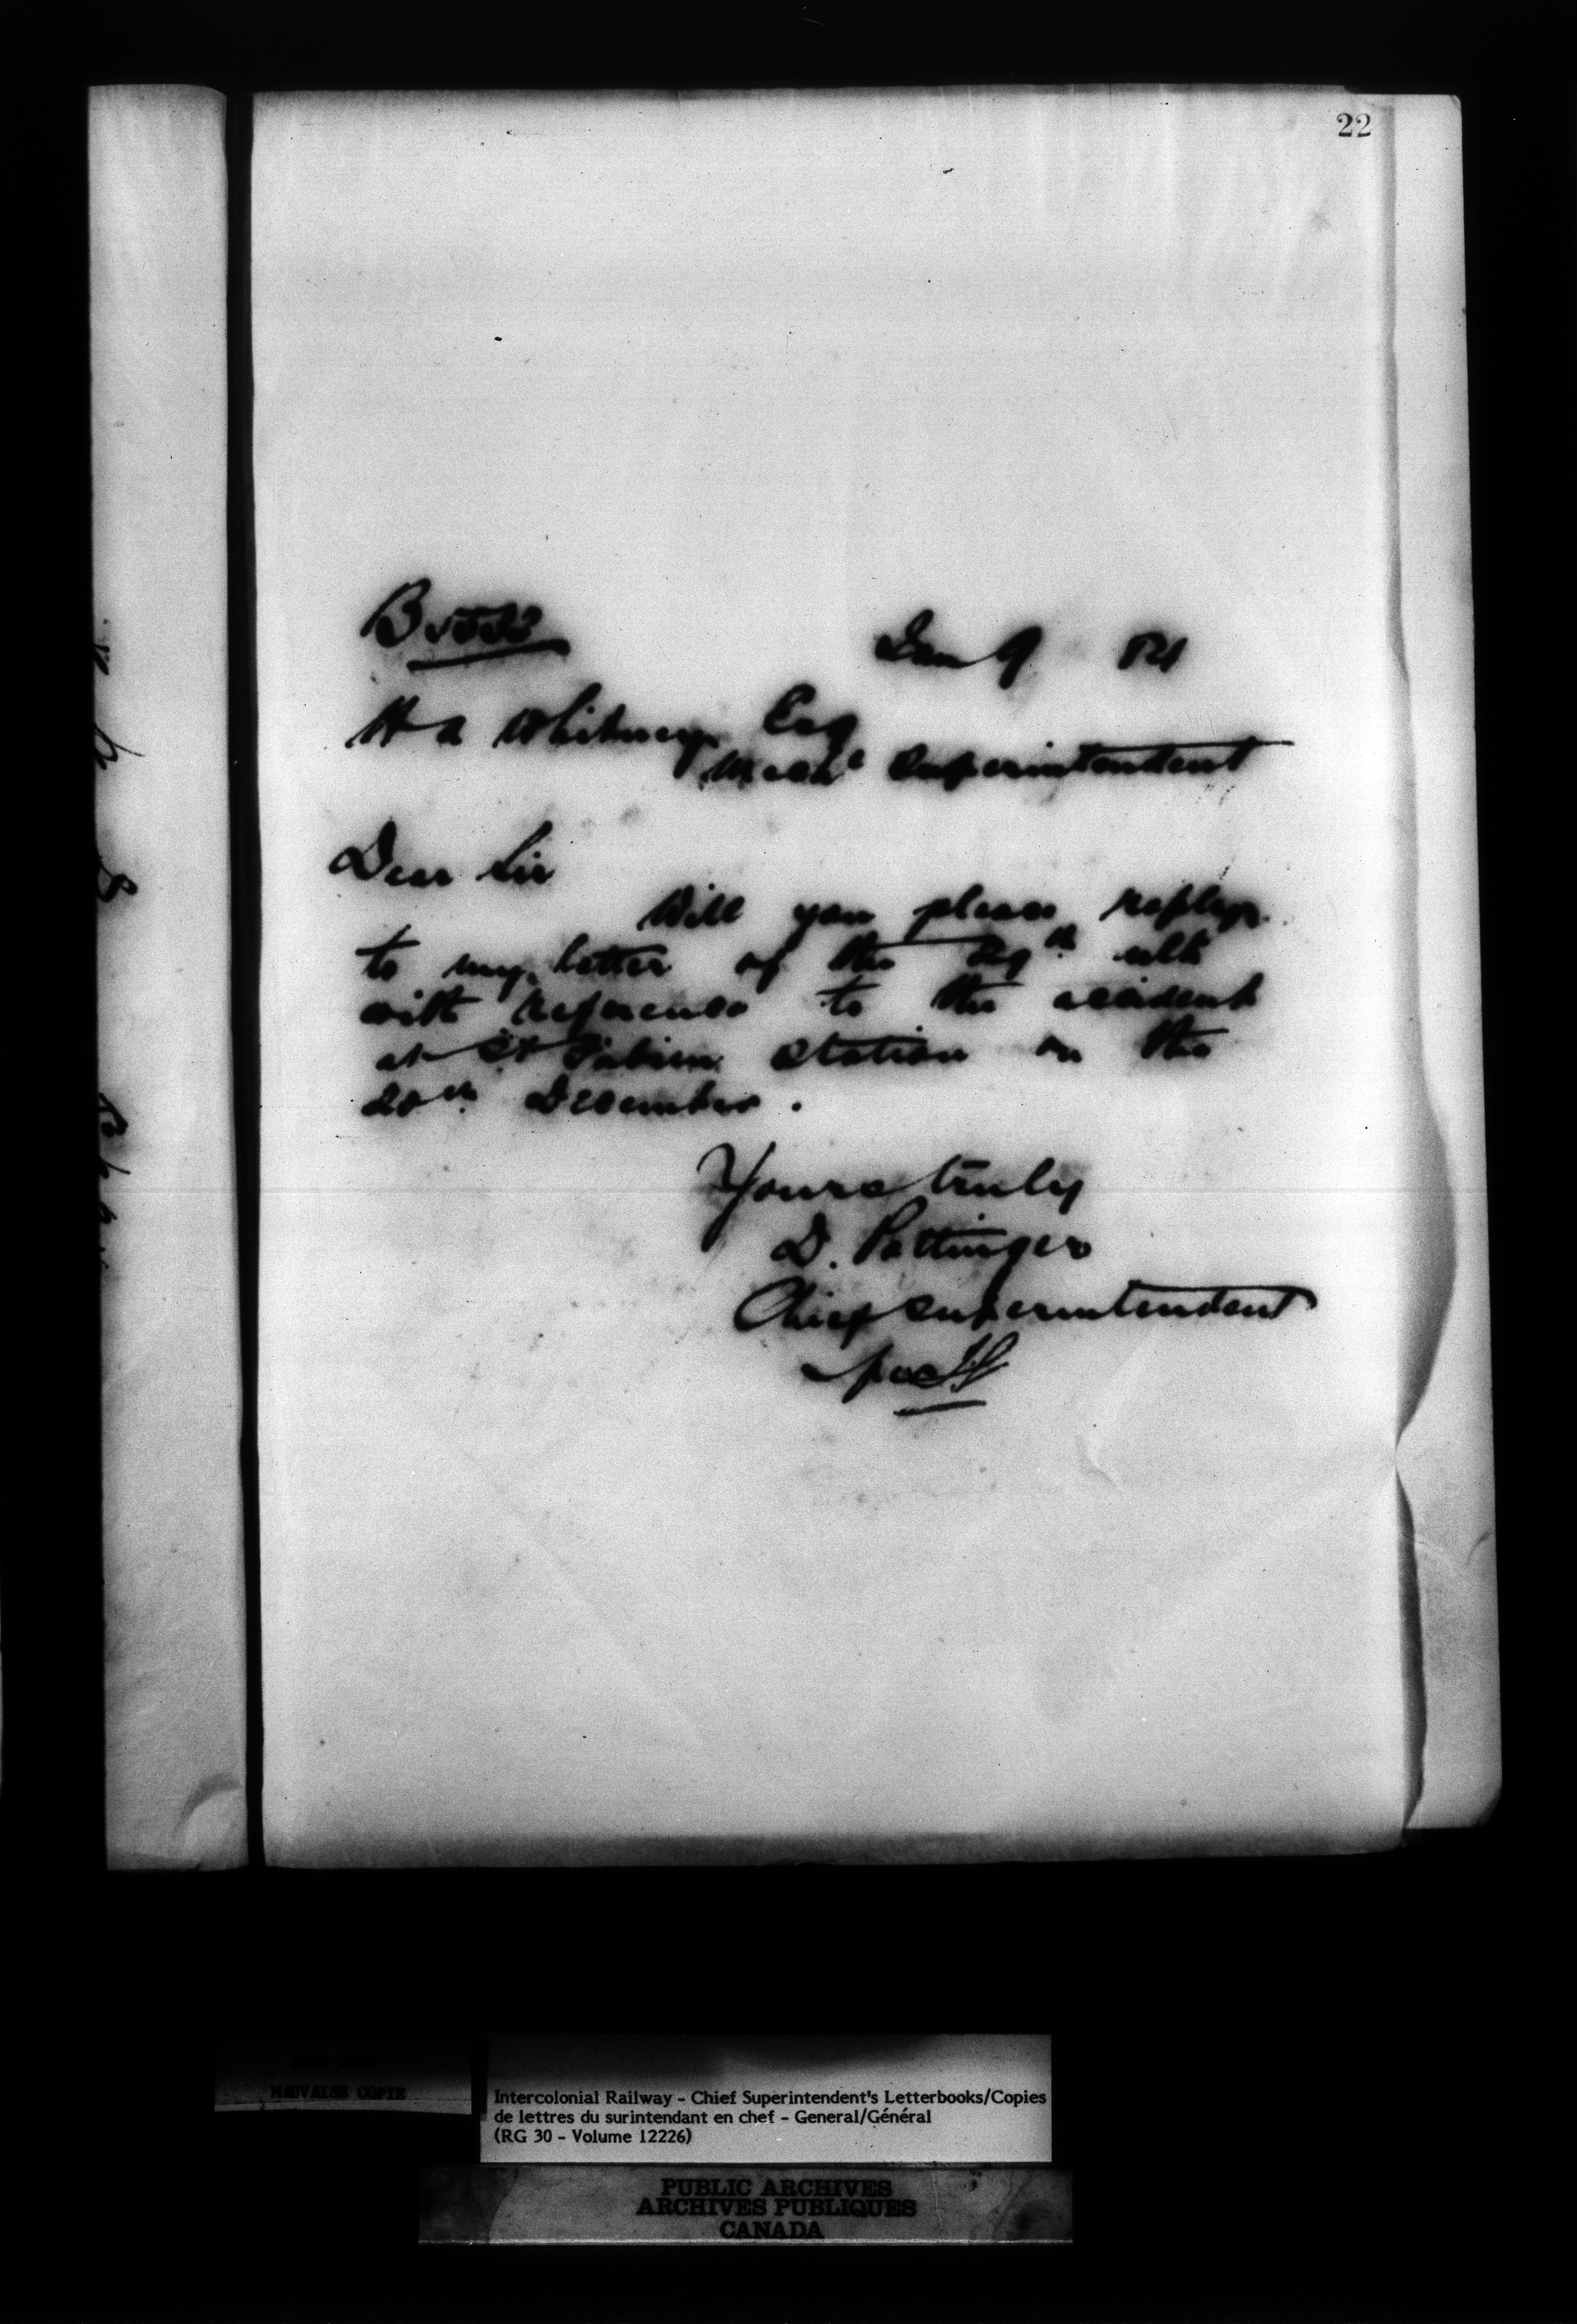 22
Jan 9 84
H A Whitney Esq
Mechl Superintendent
Dear Sir
Will you please reply
to my letter of the 29th ult
with reference to the accident
at St Fabien Station on the
20th December.
Yours truly
D. Pottinger
Chief Superintendent
MAUVAISE COPIE
Intercolonial Railway - Chief Superintendent's Letterbooks/Copies
de lettres du surintendant en chef - General/Général
(RG 30 - Volume 12226)
PUBLIC ARCHIVES
ARCHIVES PUBLIQUES
CANADA